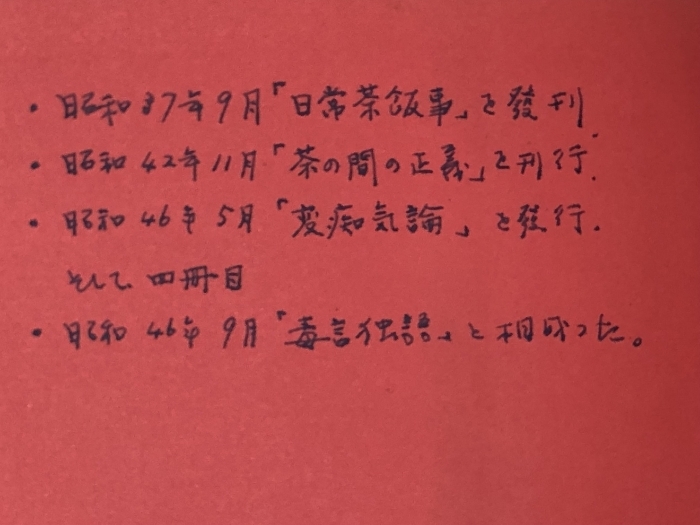 ・昭和37年9月「日常茶飯事」を發刊.
・昭和42年11月「茶の間の正義」を刊行.
・昭和46年5月「変痴気論」を発行.
そして四冊目
・昭和46年9月「毒言独語」と相成った。